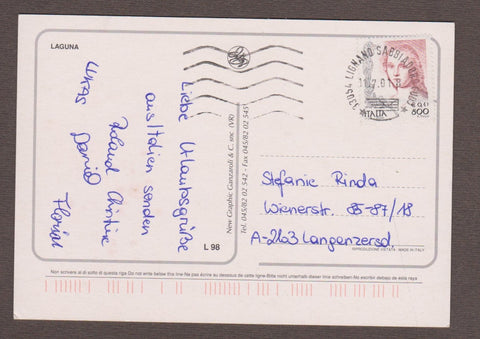 LAGUNA
Liebe Urlaubsgrüße
aus Italien senden
Roland Christine
Lukas Daniel Florian
New Graphic Ganzaroli & C. snc (VR)
Tel. 045/82 02 542 - Fax 045/82 02 545
L 98
33054 LIGNANO SABBIADORO
ITALIA
600
Stefanie Rinda
Wienerstr. 85-87/18
A-2103 Langenzersd.
RIPRODUZIONE VIETATA - MADE IN ITALY
Non scrivere al di sotto di questa riga-Do not write below this line-Ne pas écrire au dessous de cette ligne-Bitte nicht unterhalb dieser linie schreiben-No escribir debajo de esta raya